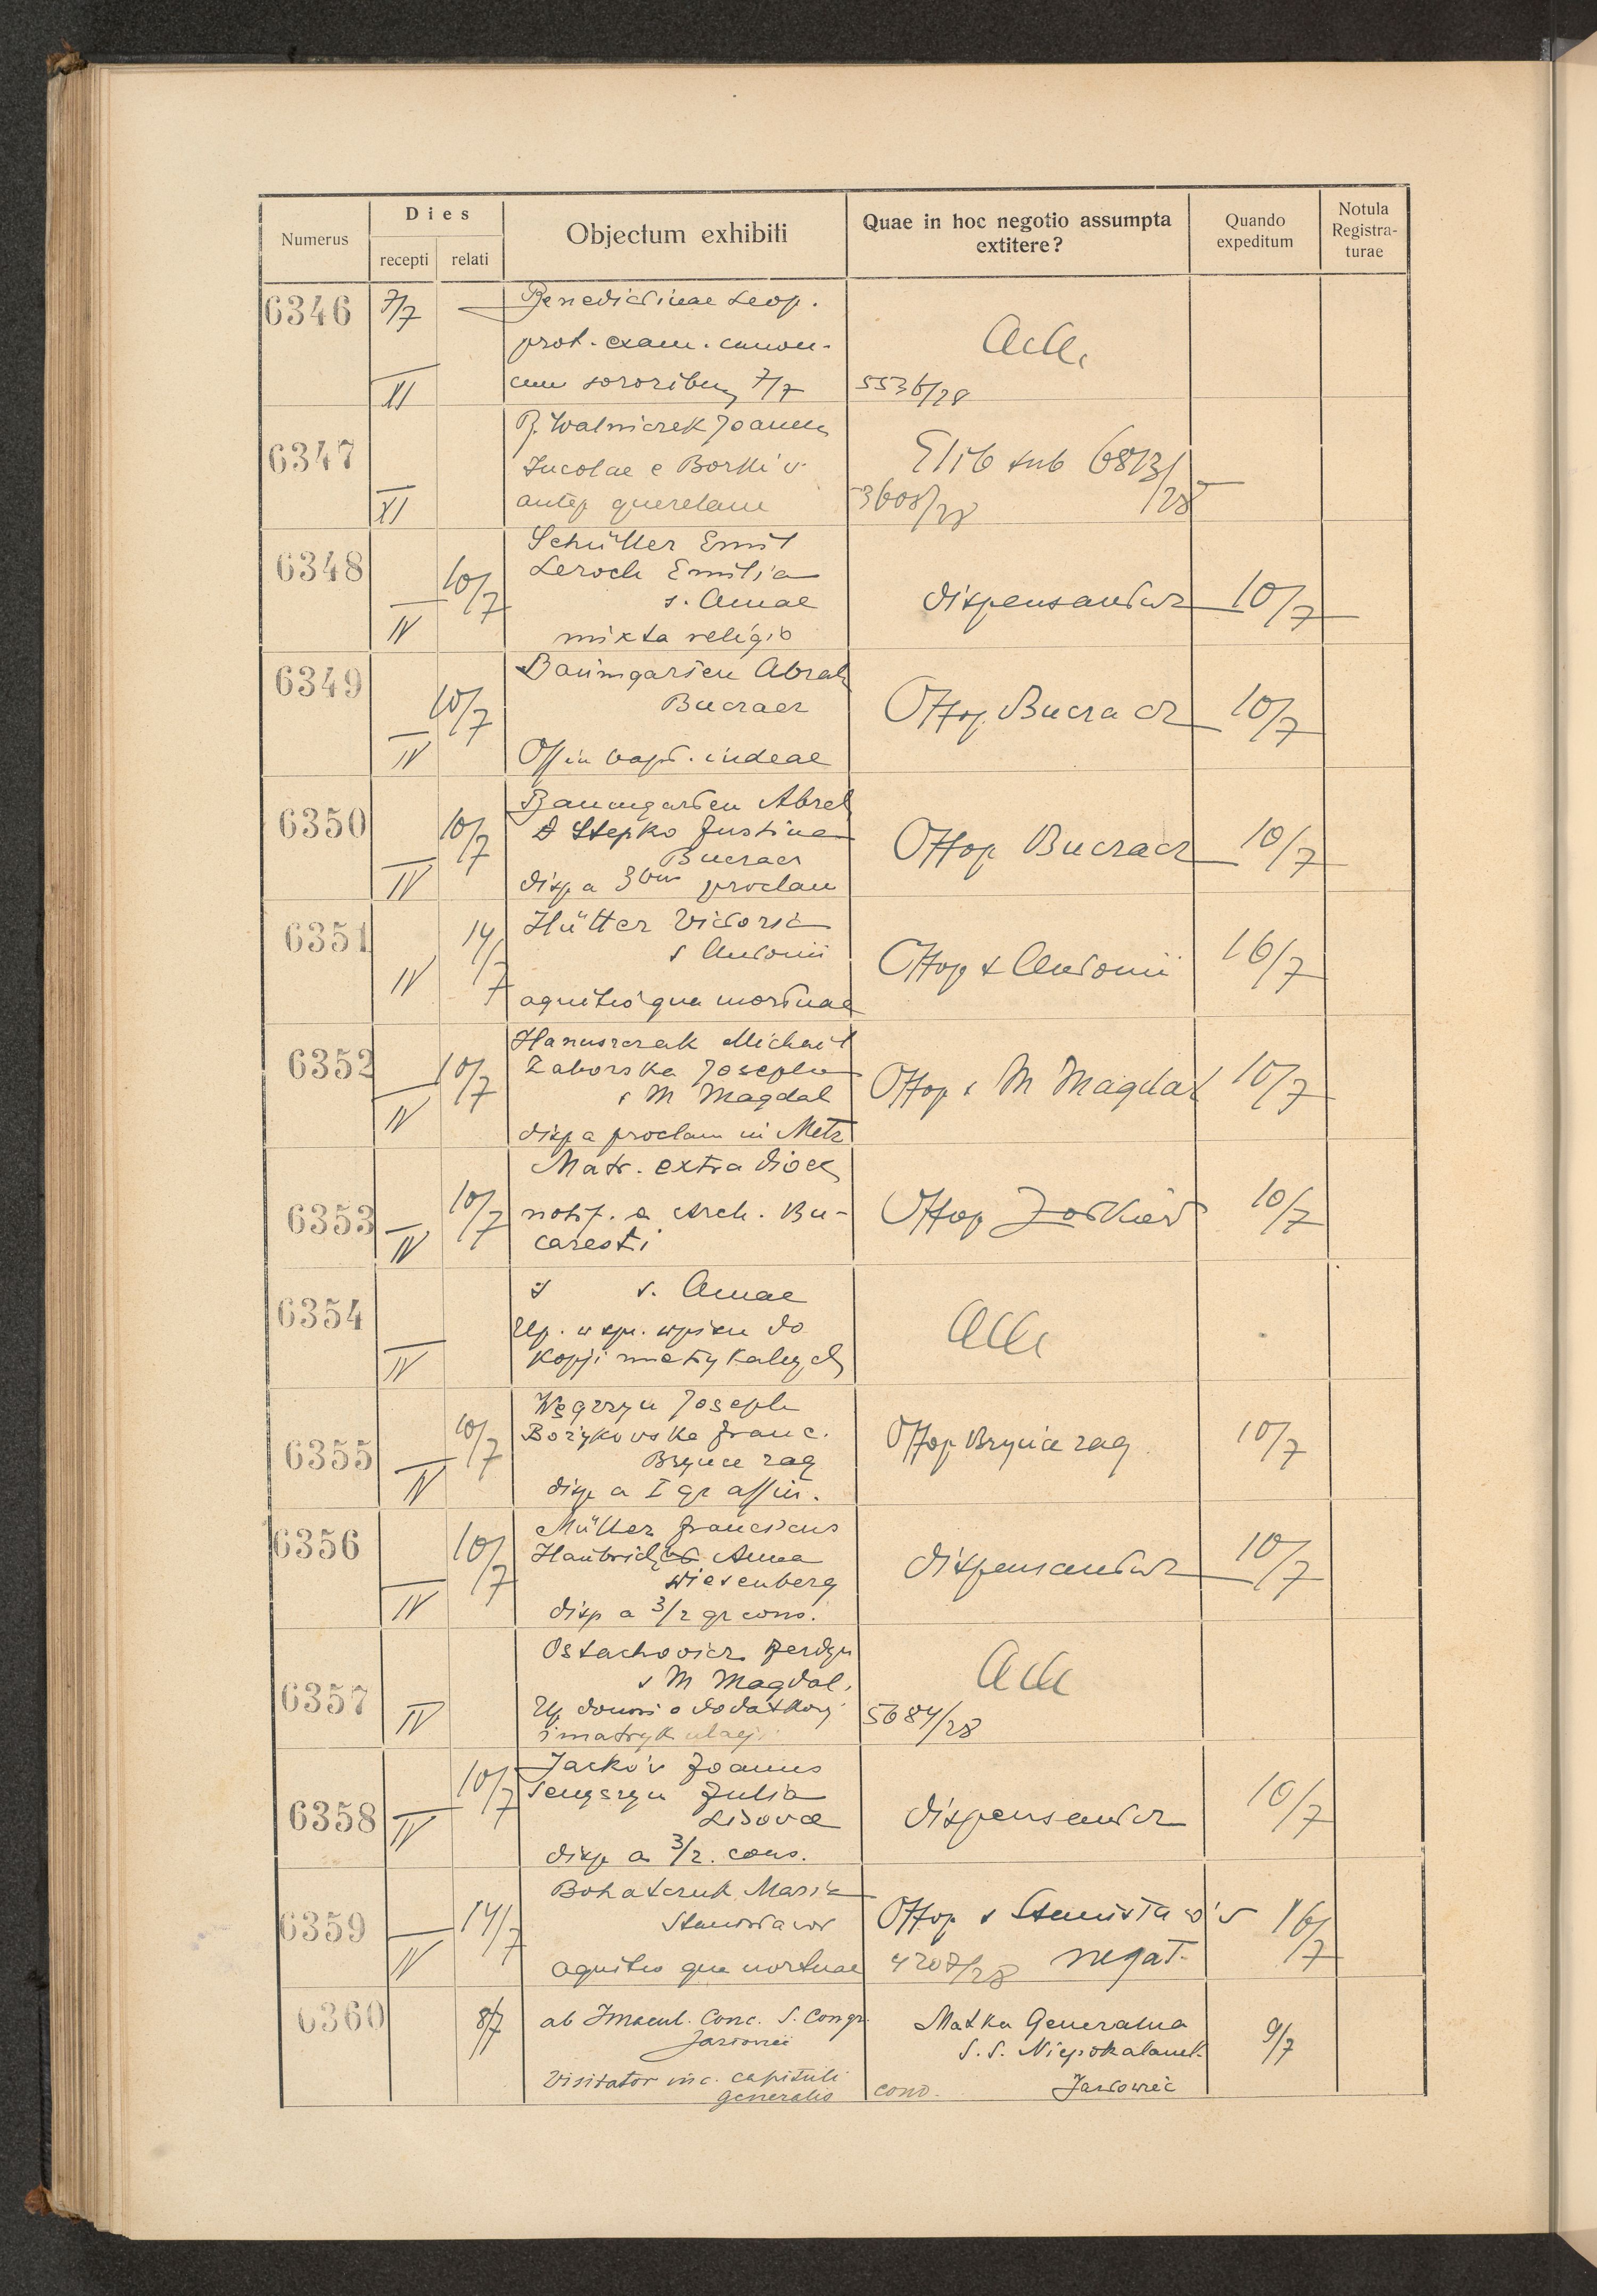 Numerus
Dies
recepti
relati
Objectum exhibiti
Quae in hoc negotio assumpta
extitere?
Quando
expeditum
Notula
Registra-
turae
6346
7/7
XI
Benedictinae Leop.
prot. exam. canon.
cum sororibus 7/7
Acta
5536/28
6347
XI
Walniczek Joannes
Incolae e Borki v.
antep querelam
Elib sub 6813/28
3608/28
6348
IV
10/7
Schüller Emil
Leroch Emilia
s. Annae
mixta religio
dispensantur
10/7
6349
IV
10/7
Baumgarten Abrah
Buczacz
Offin bapt. iudeae
Offop. Buczacz
10/7
6350
IV
10/7
Baumgarten Abrah
Stepko Justina
Buczacz
disp a 3bus proclam
Offop Buczacz
10/7
6351
IV
14/7
Hütter Victoria
s Antonii
agnitio qua mortuae
Offop s Antonii
16/7
6352
IV
10/7
Hanuszczak Michael
Zaborska Josepha
s M Magdal
disp a proclam in Metz
Offop s M Magdal
10/7
6353
IV
10/7
Matr. extra dioec
notif. a Arch. Bu-
caresti
Offop Żółkiew
10/7
6354
IV
s. Annae
Up. w spr. wpisu do
kopji metrykalnych
Acta
6355
IV
10/7
Węgrzyn Joseph
Bożykowska Franc.
Brynce zag
disp a I gr affin.
Offop Brynce zag
10/7
6356
IV
10/7
Müller Franciscus
Haubrich Anna
Wiesenberg
disp a 3/2 gr cons.
dispensantur
10/7
6357
IV
Ostachowicz Ferdyn
s M Magdal.
Up donosi o dodatkowej
imatrykulacji
Acta
5684/28
6358
IV
10/7
Jackóv Joannes
Julia
Lisovce
disp a 3/2. cons.
dispensantur
10/7
6359
IV
14/7
Bohatczuk Maria
Stanisławów
agnitio qua mortuae
Offop s Stanisławów
4207/28 negat.
16/7
6360
8/7
ab Immacul. Conc. S. Congr.
Jazłowiec
Visitator inc. capituli
generalis
Matka Generalna
S.S. Niepokalanek
cond.
Jazłowiec
9/7